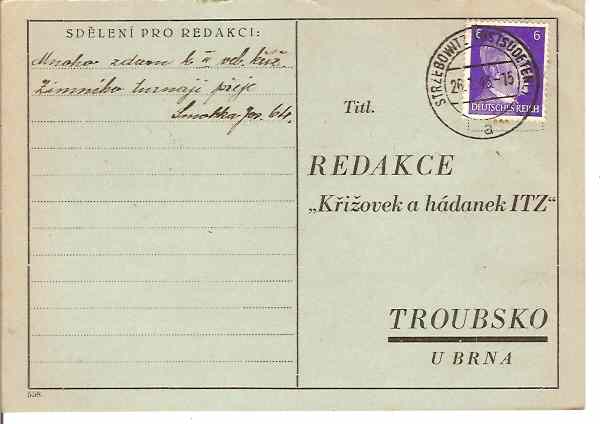 SDĚLENÍ PRO REDAKCI:
Mnoho zdaru k II
Zimního turnaji přeje
Jos.
Titl.
REDAKCE
„Křižovek a hádanek ITZ“
TROUBSKO
U BRNA
6
DEUTSCHES REICH
STRZEBOWITZ
(SUDETENL)
26.
-15
a
558.